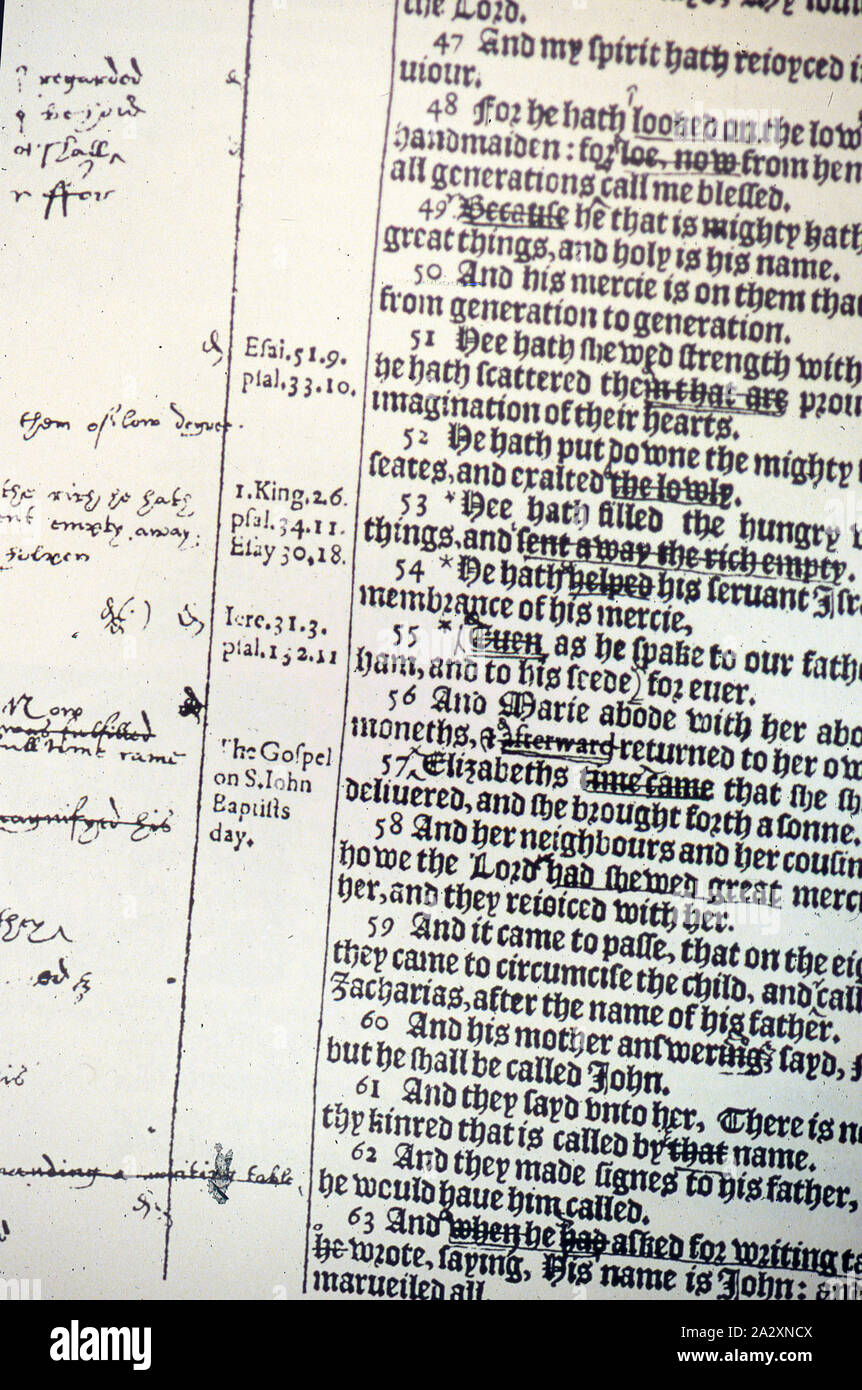 the Lord.
47 And my spirit hath reioyced i
uiour.
48 For he hath looked on the low
handmaiden: for loe, now from hen
all generations call me blessed.
49 Because he that is mighty hath
great things, and holy is his name.
50 And his mercie is on them that
from generation to generation.
51 Hee hath shewed strength with
he hath scattered them that are prou
imagination of their hearts.
52 He hath put downe the mighty
seates, and exalted the lowly.
53 *Hee hath filled the hungry
things, and sent away the rich empty.
54 *He hath helped his seruant Isr
membrance of his mercie,
55 * Euen as he spake to our fath
ham, and to his seede for euer.
56 And Marie abode with her abo
moneths, & afterward returned to her ow
57 Elizabeths time came that she sh
deliuered, and she brought forth a sonne.
58 And her neighbours and her cousin
howe the Lord had shewed great merc
her, and they reioiced with her.
59 And it came to passe, that on the eig
they came to circumcise the child, and call
Zacharias, after the name of his father.
60 And his mother answering sayd,
but he shall be called John.
61 And they sayd vnto her, There is n
thy kinred that is called by that name.
62 And they made signes to his father,
he would haue him called.
63 And when he had asked for writing ta
he wrote, saying, His name is John: an
marueiled all.
Esai.51.9.
psal.33.10.
1.King.2.6.
psal.34.11.
Esay 30,18.
Iere.31.3.
psal.132.11
The Gospel
on S.Iohn
Baptists
day.
regarded
shall
for
them of low degree.
the rich he hath
empty away.
holpen
Now
was fulfilled
full time came
magnifyed his
a writing table
alamy
Image ID: 2A2XNCX
www.alamy.com